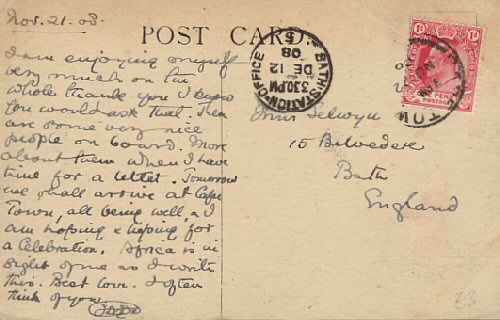 Nov. 21. 08.
POST CARD.
I am enjoying myself
very much on the
whole thank you I knew
you would ask that. There
are some very nice
people on board. More
about them when I have
time for a letter. Tomorrow
we shall arrive at Cape
Town, all being well, & I
am hoping & hoping for
a Celebration. Africa is in
sight of me as I write
this. Best love. I often
think of you
BATH STATION OFFICE
3.30 PM
DE 12
08
TOW
1d
1d
PENNY
POSTAGE
Miss Selwyn
15 Belvedere
Bath
England
£3